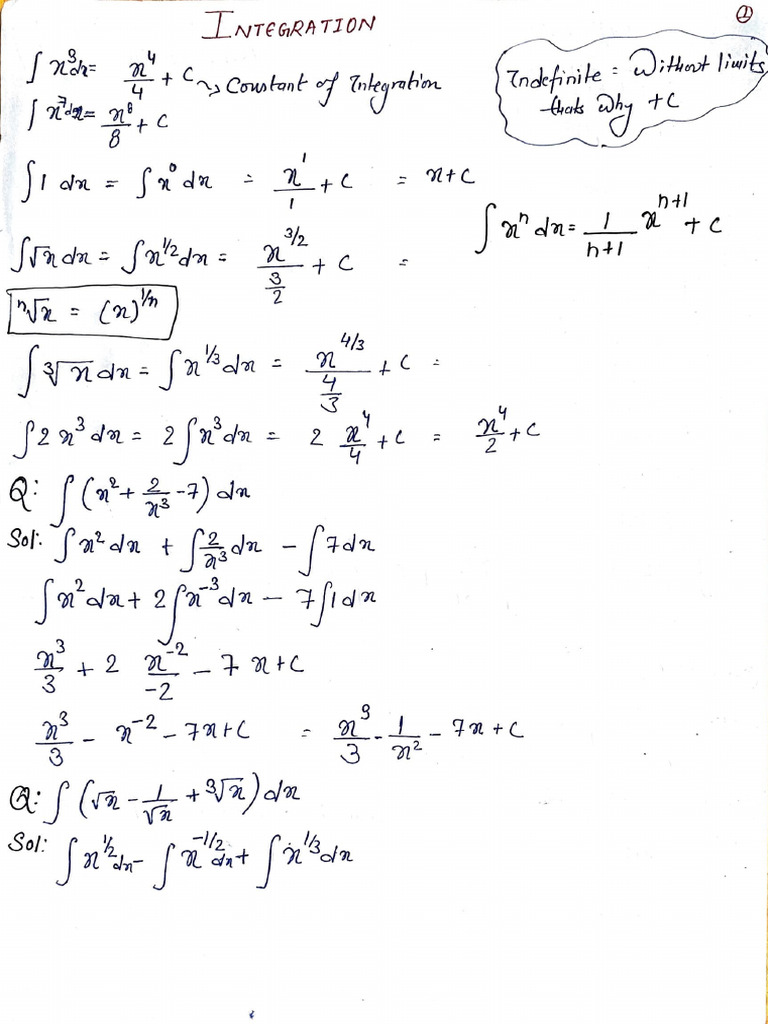 ①
INTEGRATION
∫ x³ dx = x⁴/4 + C ↝ Constant of Integration
Indefinite = Without limits
thats why +C
∫ x⁷ dx = x⁸/8 + C
∫ 1 dx = ∫ x⁰ dx = x¹/1 + C = x + C
∫ xⁿ dx = 1/(n+1) xⁿ⁺¹ + C
∫ √x dx = ∫ x^(1/2) dx = x^(3/2)/(3/2) + C =
ⁿ√x = (x)^(1/n)
∫ ³√x dx = ∫ x^(1/3) dx = x^(4/3)/(4/3) + C =
∫ 2 x³ dx = 2 ∫ x³ dx = 2 x⁴/4 + C = x⁴/2 + C
Q: ∫ (x² + 2/x³ - 7) dx
Sol: ∫ x² dx + ∫ 2/x³ dx - ∫ 7 dx
∫ x² dx + 2 ∫ x⁻³ dx - 7 ∫ 1 dx
x³/3 + 2 x⁻²/-2 - 7 x + C
x³/3 - x⁻² - 7x + C = x³/3 - 1/x² - 7x + C
Q: ∫ (√x - 1/√x + ³√x) dx
Sol: ∫ x^(1/2) dx - ∫ x^(-1/2) dx + ∫ x^(1/3) dx